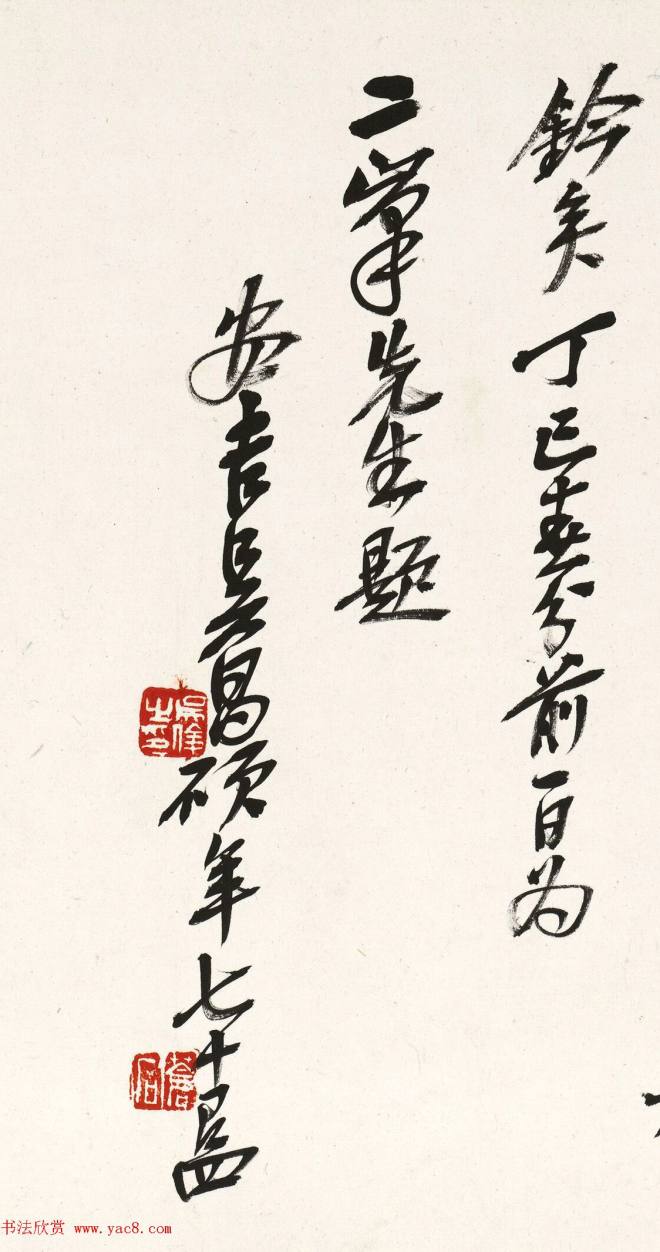 鈐矣丁巳春分前一日為
二先生題
安吉吳昌碩年七十四
吳俊之印
书法欣赏 www.yac8.com